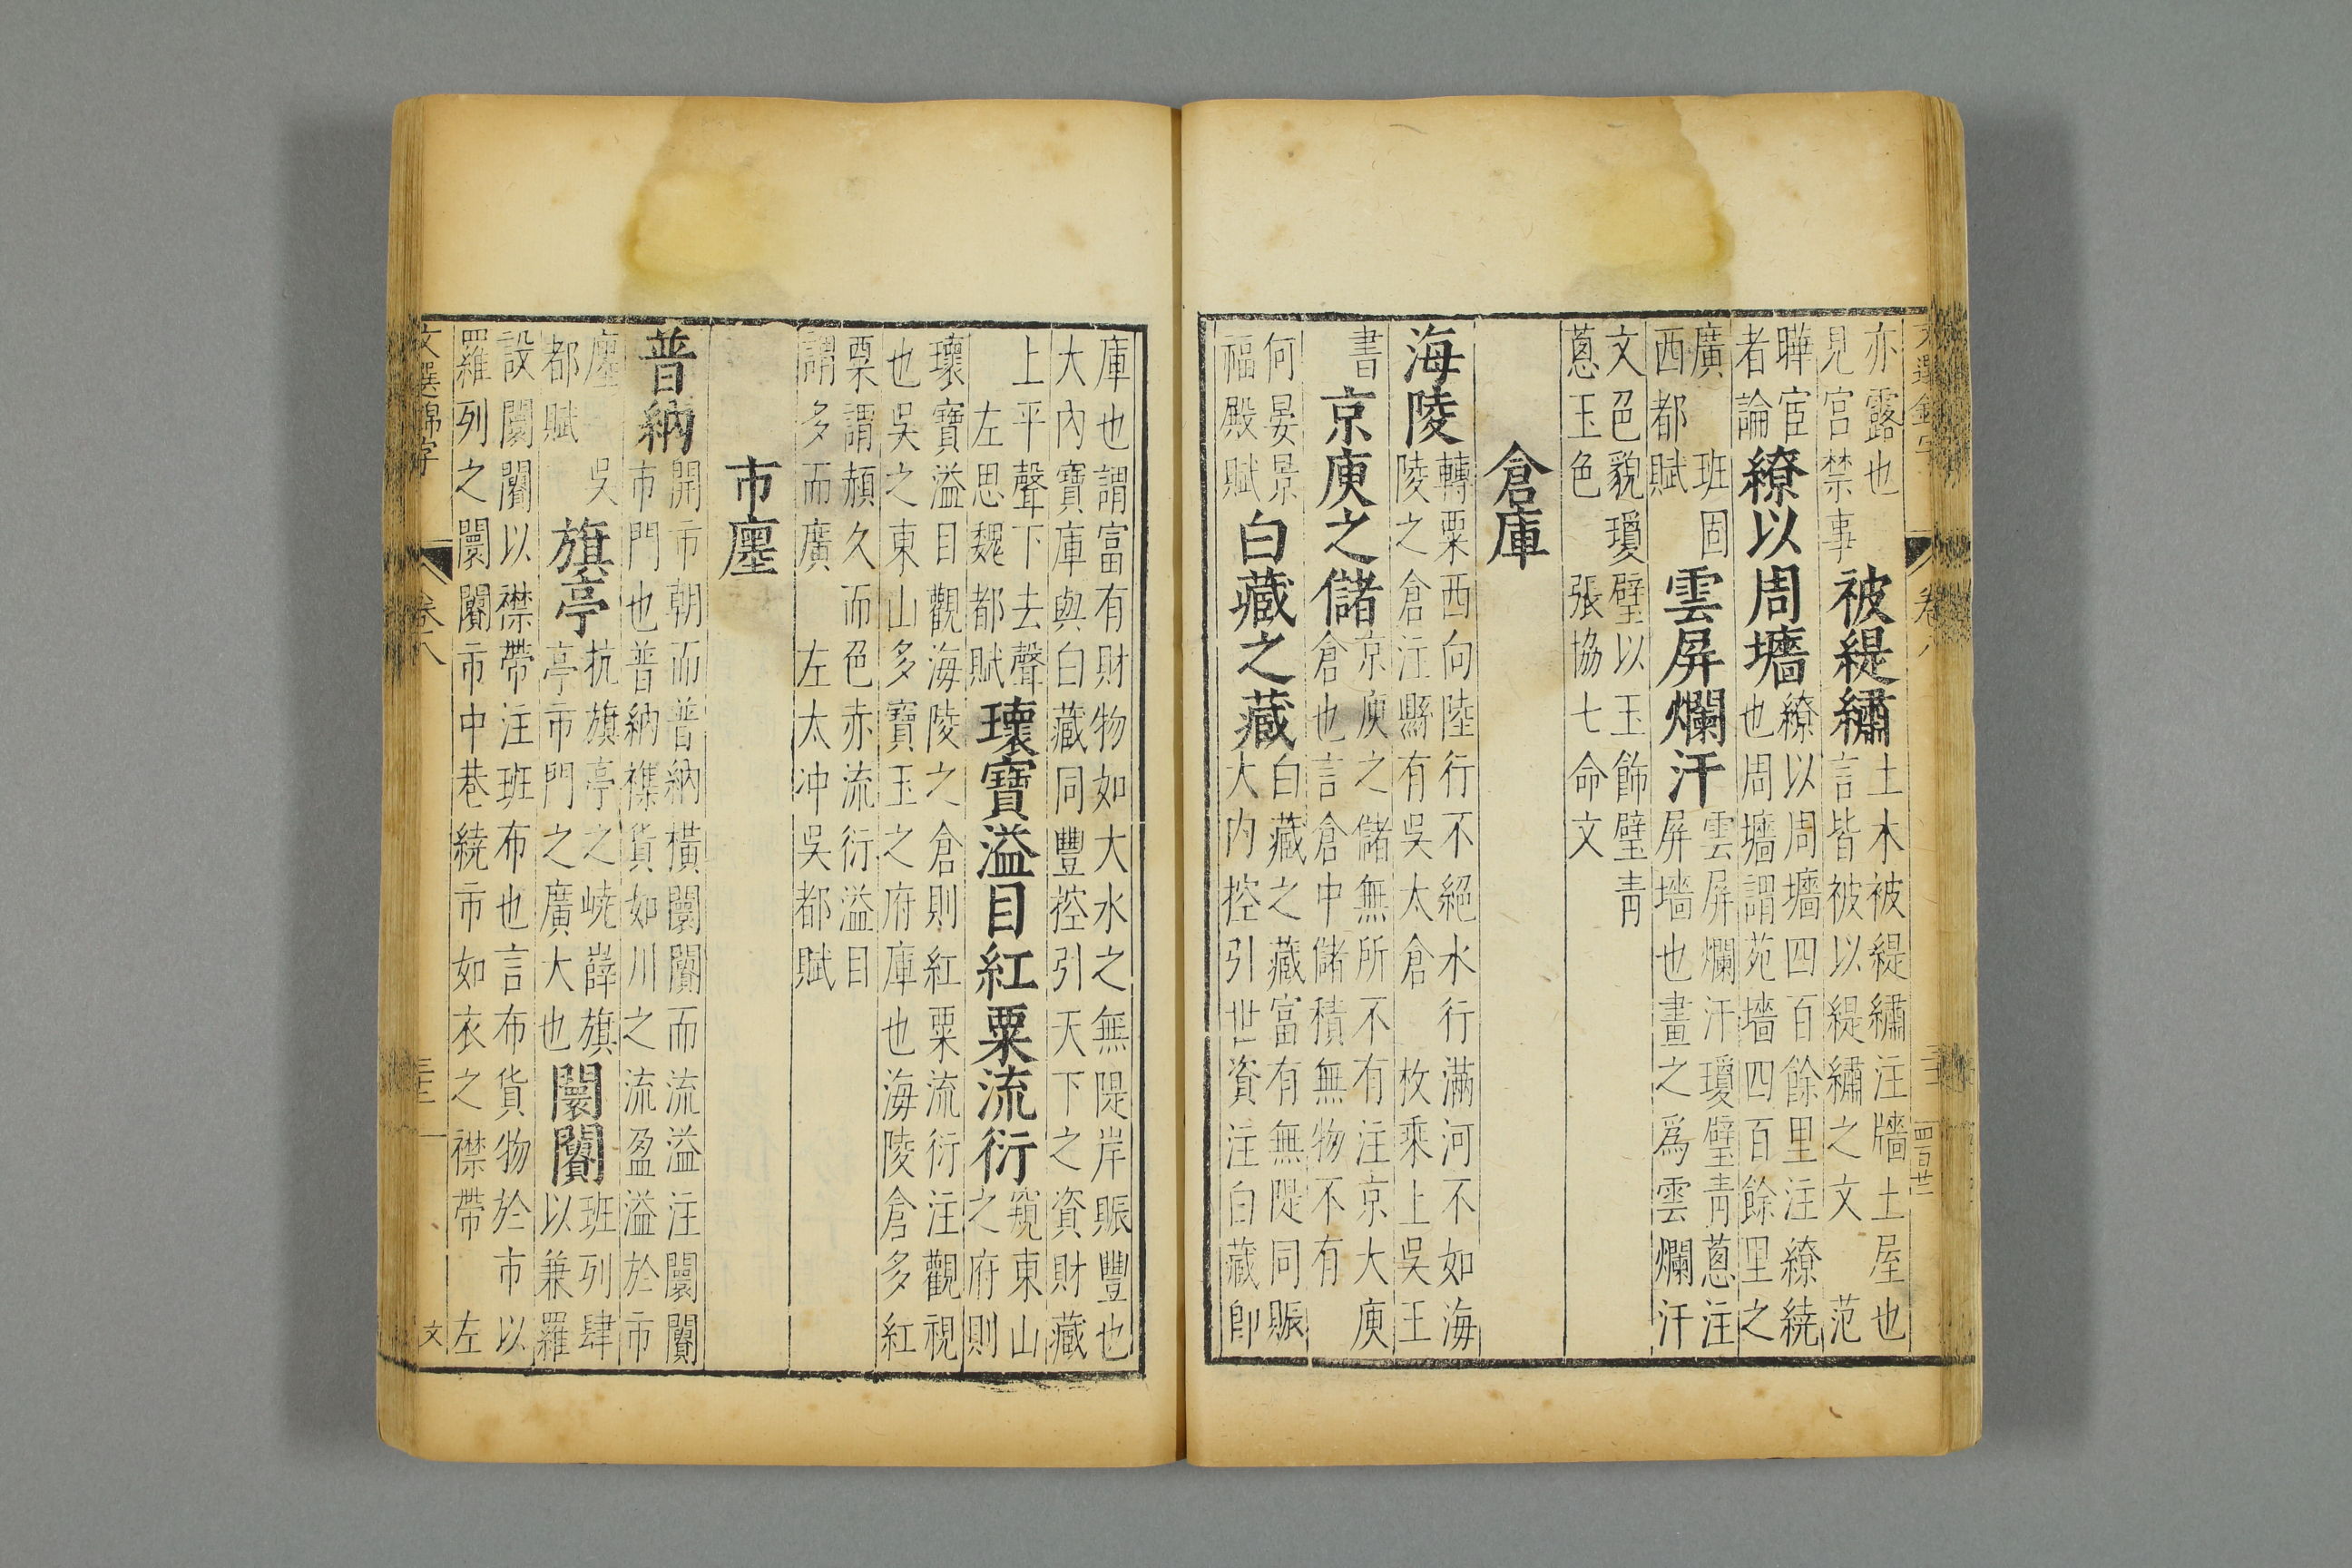 文選錦字
卷八
亦露也
見宮禁事
被緹繡
土木被緹繡注牆土屋也
言皆被以緹繡之文 范
曄宦
者論
繚以周墻
繚以周墻四百餘里注繚繞
也周墻謂苑墻四百餘里之
廣 班固
西都賦
雲屏爛汗
雲屏爛汗瓊壁青蔥注
屏墻也畫之爲雲爛汗
文色貌瓊壁以玉飾壁青
蔥玉色 張協七命文
倉庫
海陵
轉粟西向陸行不絕水行滿河不如海
陵之倉注縣有吳太倉 枚乘上吳王
書
京庾之儲
京庾之儲無所不有注京大庾
倉也言倉中儲積無物不有
何晏景
福殿賦
白藏之藏
白藏之藏富有無隄同賑
大内控引世資注白藏即
庫也謂富有財物如大水之無隄岸賑豐也
大内寶庫與白藏同豐控引天下之資財藏
上平聲下去聲
左思魏都賦
瓌寶溢目紅粟流衍
窺東山
之府則
瓌寶溢目觀海陵之倉則紅粟流衍注觀視
也吳之東山多寶玉之府庫也海陵倉多紅
粟謂頳久而色赤流衍溢目
謂多而廣 左太冲吳都賦
市廛
普納
開市朝而普納橫闤闠而流溢注闤闠
市門也普納襍貨如川之流盈溢於市
廛 吳
都賦
旗亭
抗旗亭之嶢薛旗
亭市門之廣大也
闤闠
班列肆
以兼羅
設闤闠以襟帶注班布也言布貨物於市以
羅列之闤闠市中巷繞市如衣之襟帶 左
文選錦字
卷八
文